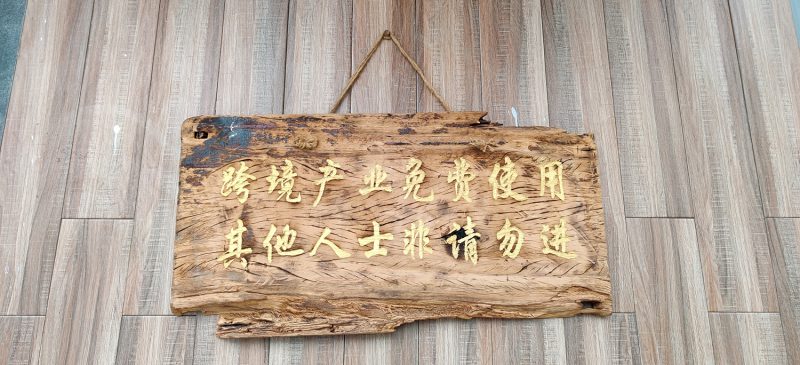 跨境产业免费使用
其他人士非请勿进